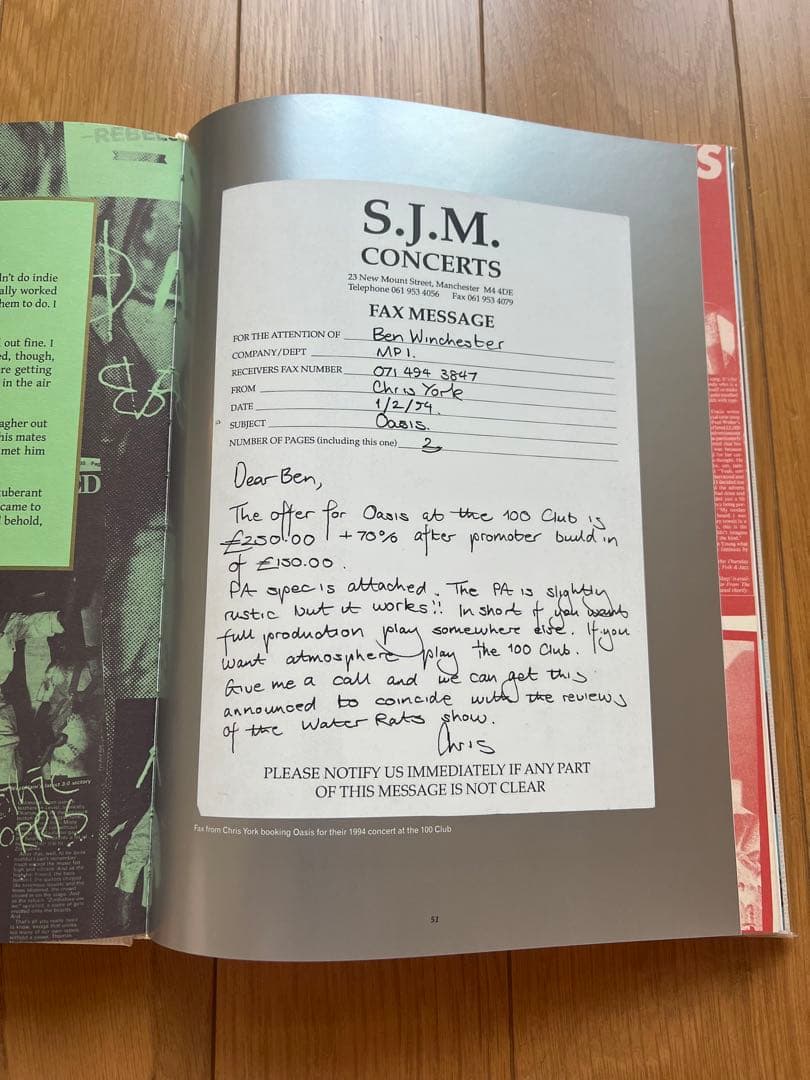 REBEL
n't do indie
ally worked
hem to do. I
out fine. I
ed, though,
re getting
in the air
agher out
his mates
met him
uberant
came to
behold,
D
ORRIS
S
S.J.M.
CONCERTS
23 New Mount Street, Manchester M4 4DE
Telephone 061 953 4056 Fax 061 953 4079
FAX MESSAGE
FOR THE ATTENTION OF Ben Winchester
COMPANY/DEPT MPI.
RECEIVERS FAX NUMBER 071 494 3847
FROM Chris York
DATE 1/2/94.
SUBJECT Oasis.
NUMBER OF PAGES (including this one) 2
Dear Ben,
The offer for Oasis at the 100 Club is
£250.00 +70% after promoter build in
of £150.00.
PA spec is attached. The PA is slightly
rustic but it works!! In short if you want
full production play somewhere else. If you
want atmosphere play the 100 Club.
Give me a call and we can get this
announced to coincide with the reviews
of the Water Rats show.
Chris
PLEASE NOTIFY US IMMEDIATELY IF ANY PART
OF THIS MESSAGE IS NOT CLEAR
Fax from Chris York booking Oasis for their 1994 concert at the 100 Club
51